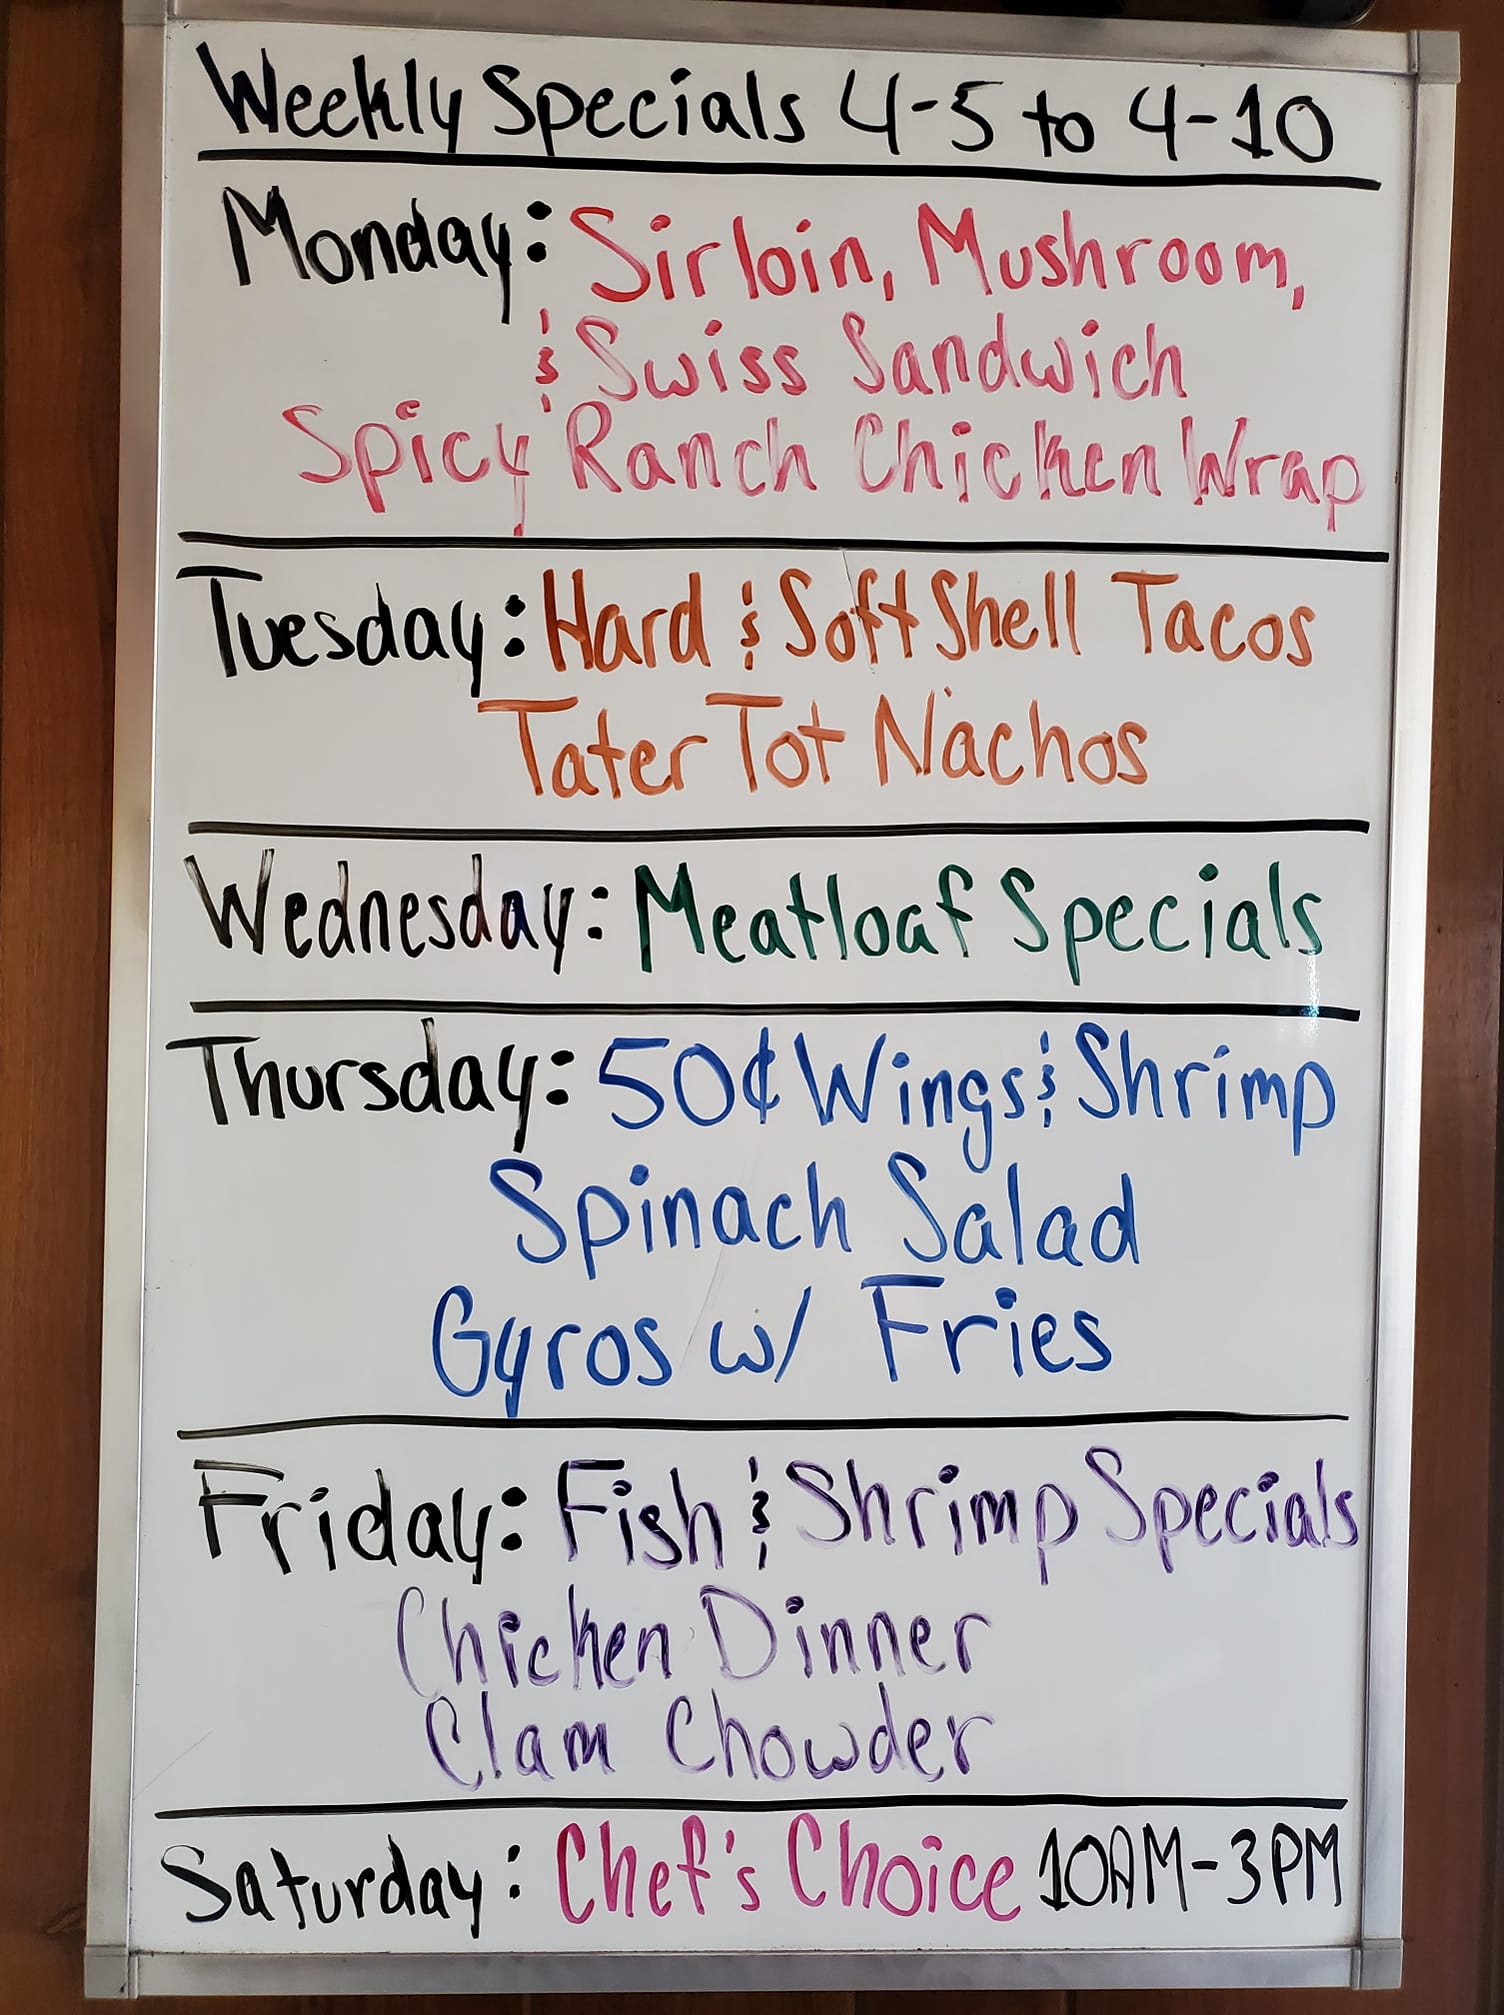 Weekly Specials 4-5 to 4-10
Monday: Sirloin, Mushroom,
& Swiss Sandwich
Spicy Ranch Chicken Wrap
Tuesday: Hard & Soft Shell Tacos
Tater Tot Nachos
Wednesday: Meatloaf Specials
Thursday: 50¢ Wings & Shrimp
Spinach Salad
Gyros w/ Fries
Friday: Fish & Shrimp Specials
Chicken Dinner
Clam Chowder
Saturday: Chef's Choice 10AM-3PM